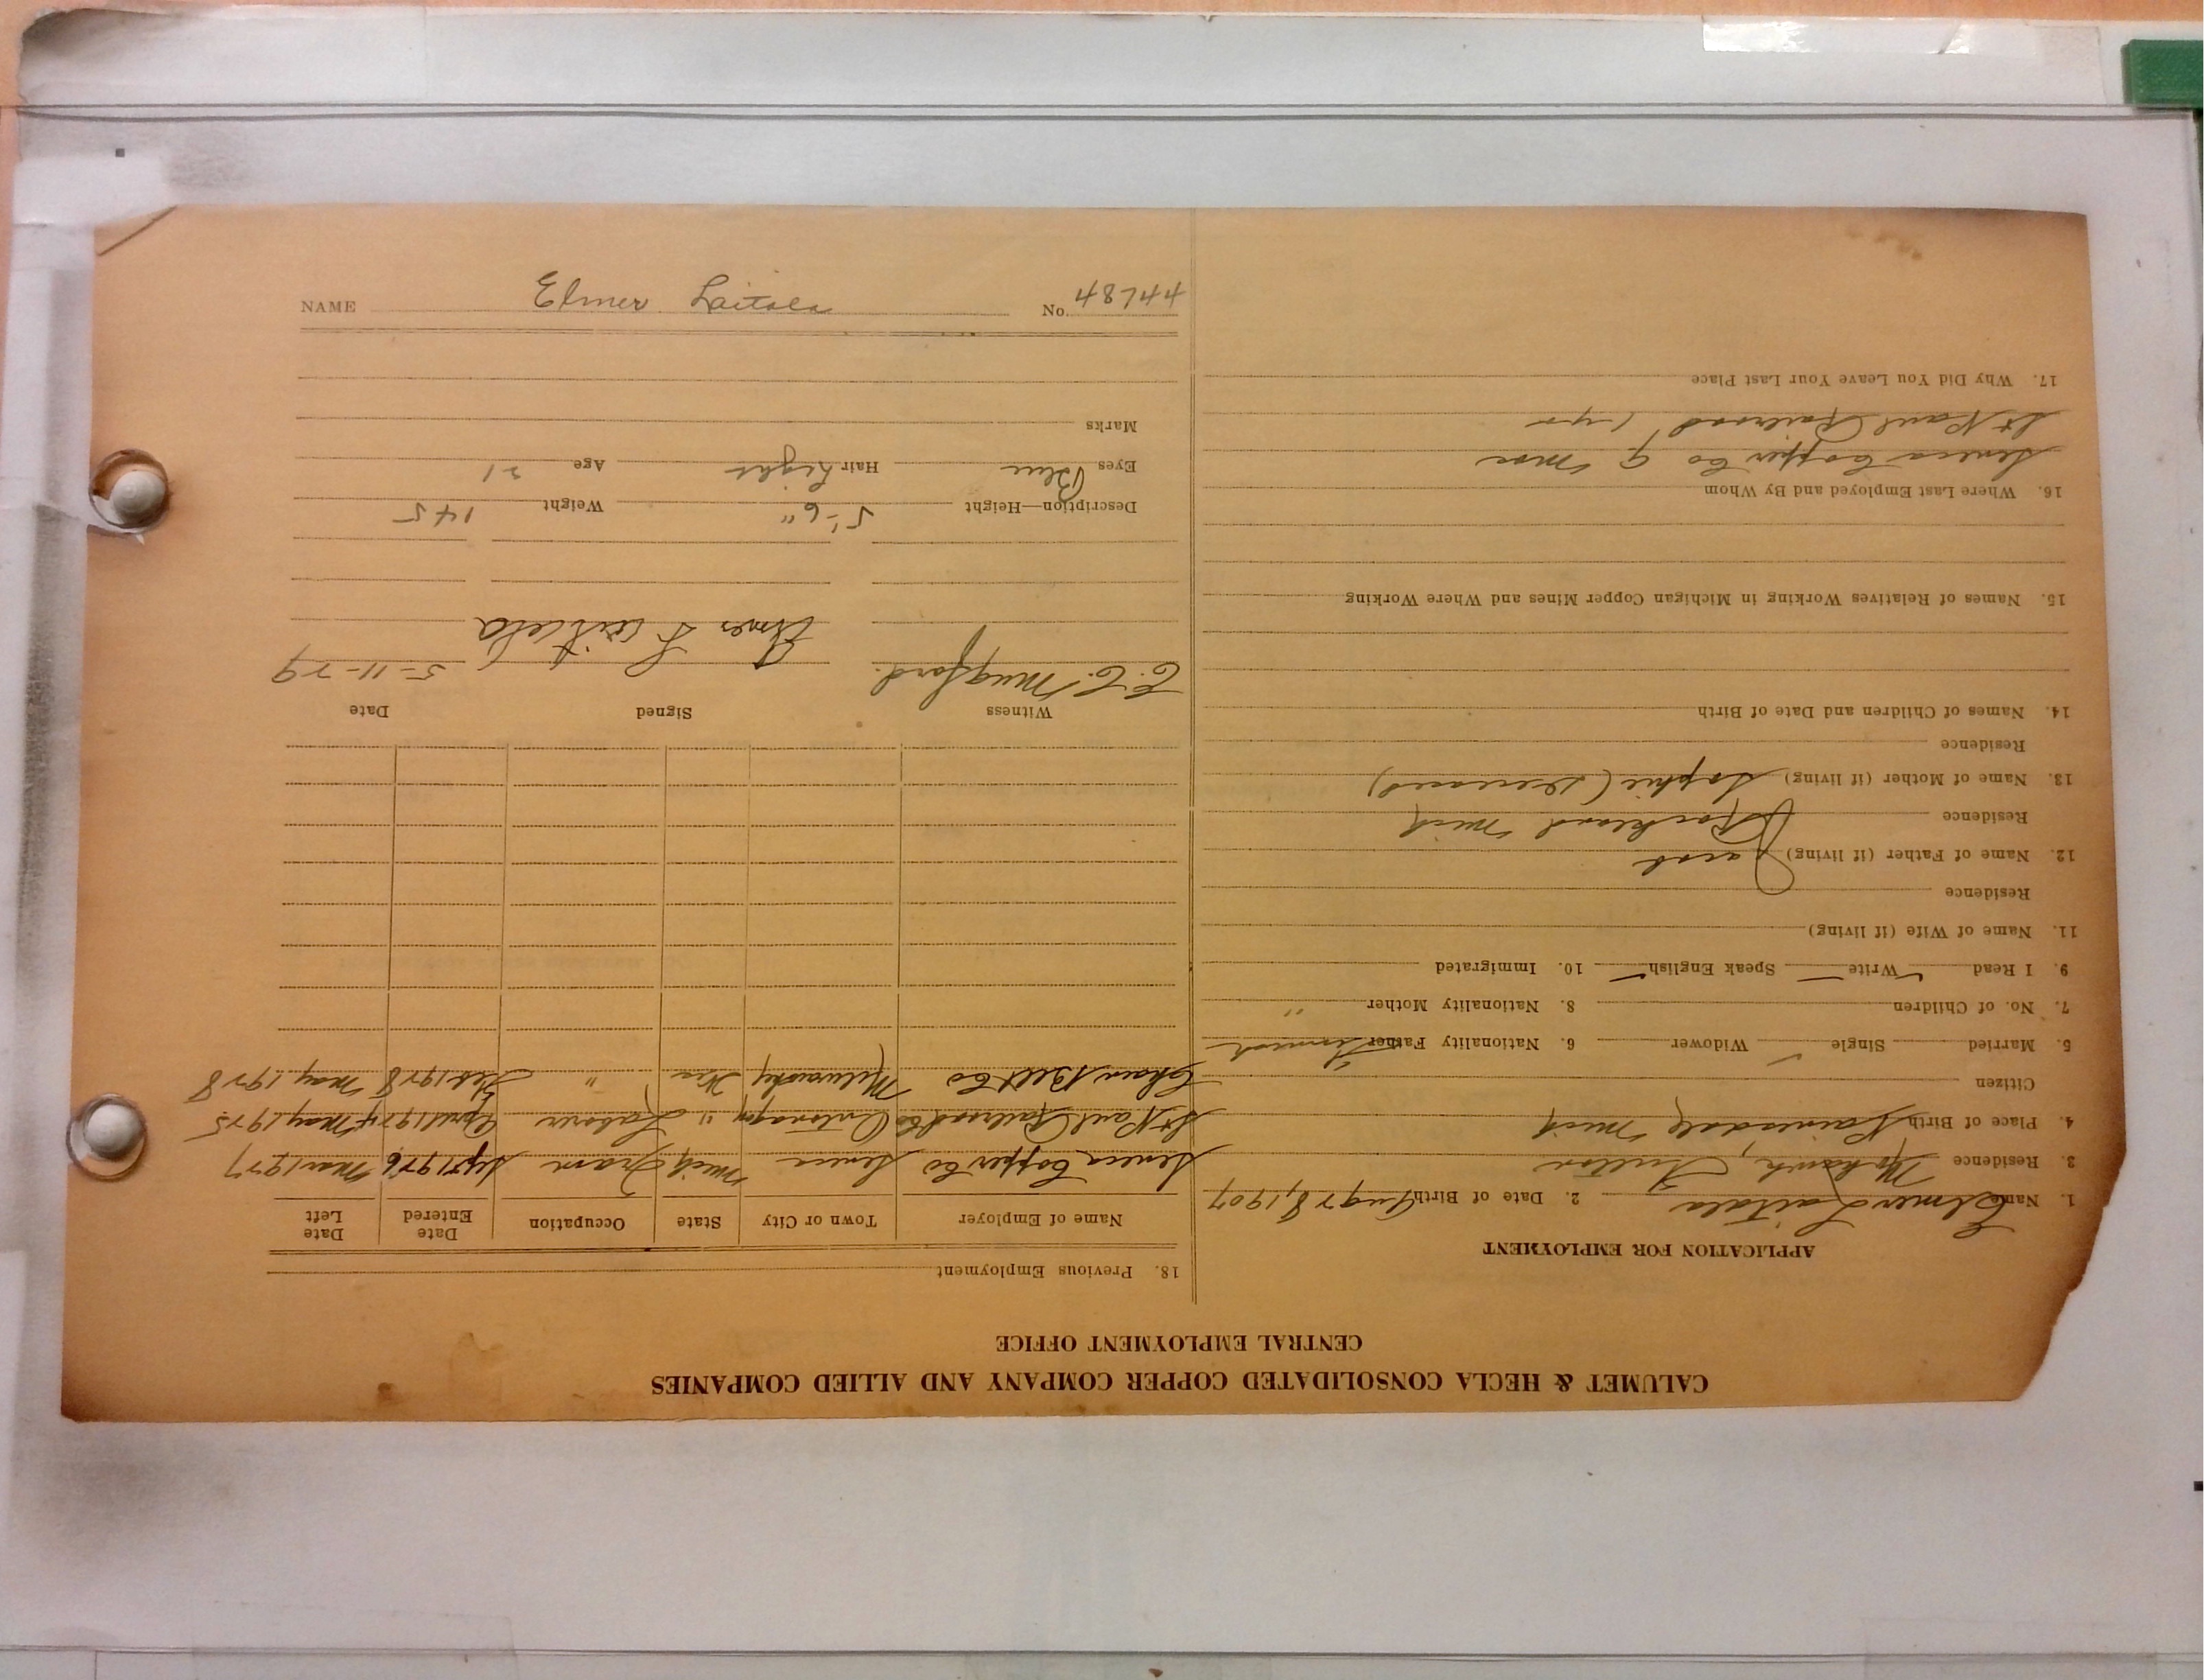 CALUMET & HECLA CONSOLIDATED COPPER COMPANY AND ALLIED COMPANIES
CENTRAL EMPLOYMENT OFFICE
APPLICATION FOR EMPLOYMENT
1. Name Elmer Laitala 2. Date of Birth Aug 28, 1907
3. Residence Mohawk,
4. Place of Birth Painesdale Mich
Citizen
5. Married Single ✓ Widower 6. Nationality Father Finnish
7. No. of Children 8. Nationality Mother "
9. I Read ✓ Write ✓ Speak English ✓ 10. Immigrated
11. Name of Wife (if living)
Residence
12. Name of Father (if living) Jacob
Residence Rockland Mich
13. Name of Mother (if living) Sophie (Deceased)
Residence
14. Names of Children and Date of Birth
15. Names of Relatives Working in Michigan Copper Mines and Where Working
16. Where Last Employed and By Whom
Seneca Copper Co 9 mos
St Paul Railroad 1 yr
17. Why Did You Leave Your Last Place
18. Previous Employment
Name of Employer Town or City State Occupation Date Entered Date Left
Seneca Copper Co Seneca Mich Tram Sept 1926 Mar 1927
St Paul Railroad Co Ontonagon " Laborer April 1924 May 1925
Chain Belt Co Milwauky Wis " Feb 1928 May 1928
Witness Signed Date
E. C. Mugford. Elmer Laitala 5-11-29
Description—Height 5'-6" Weight 145
Eyes Blue Hair Light Age 21
Marks
NAME Elmer Laitala No. 48744